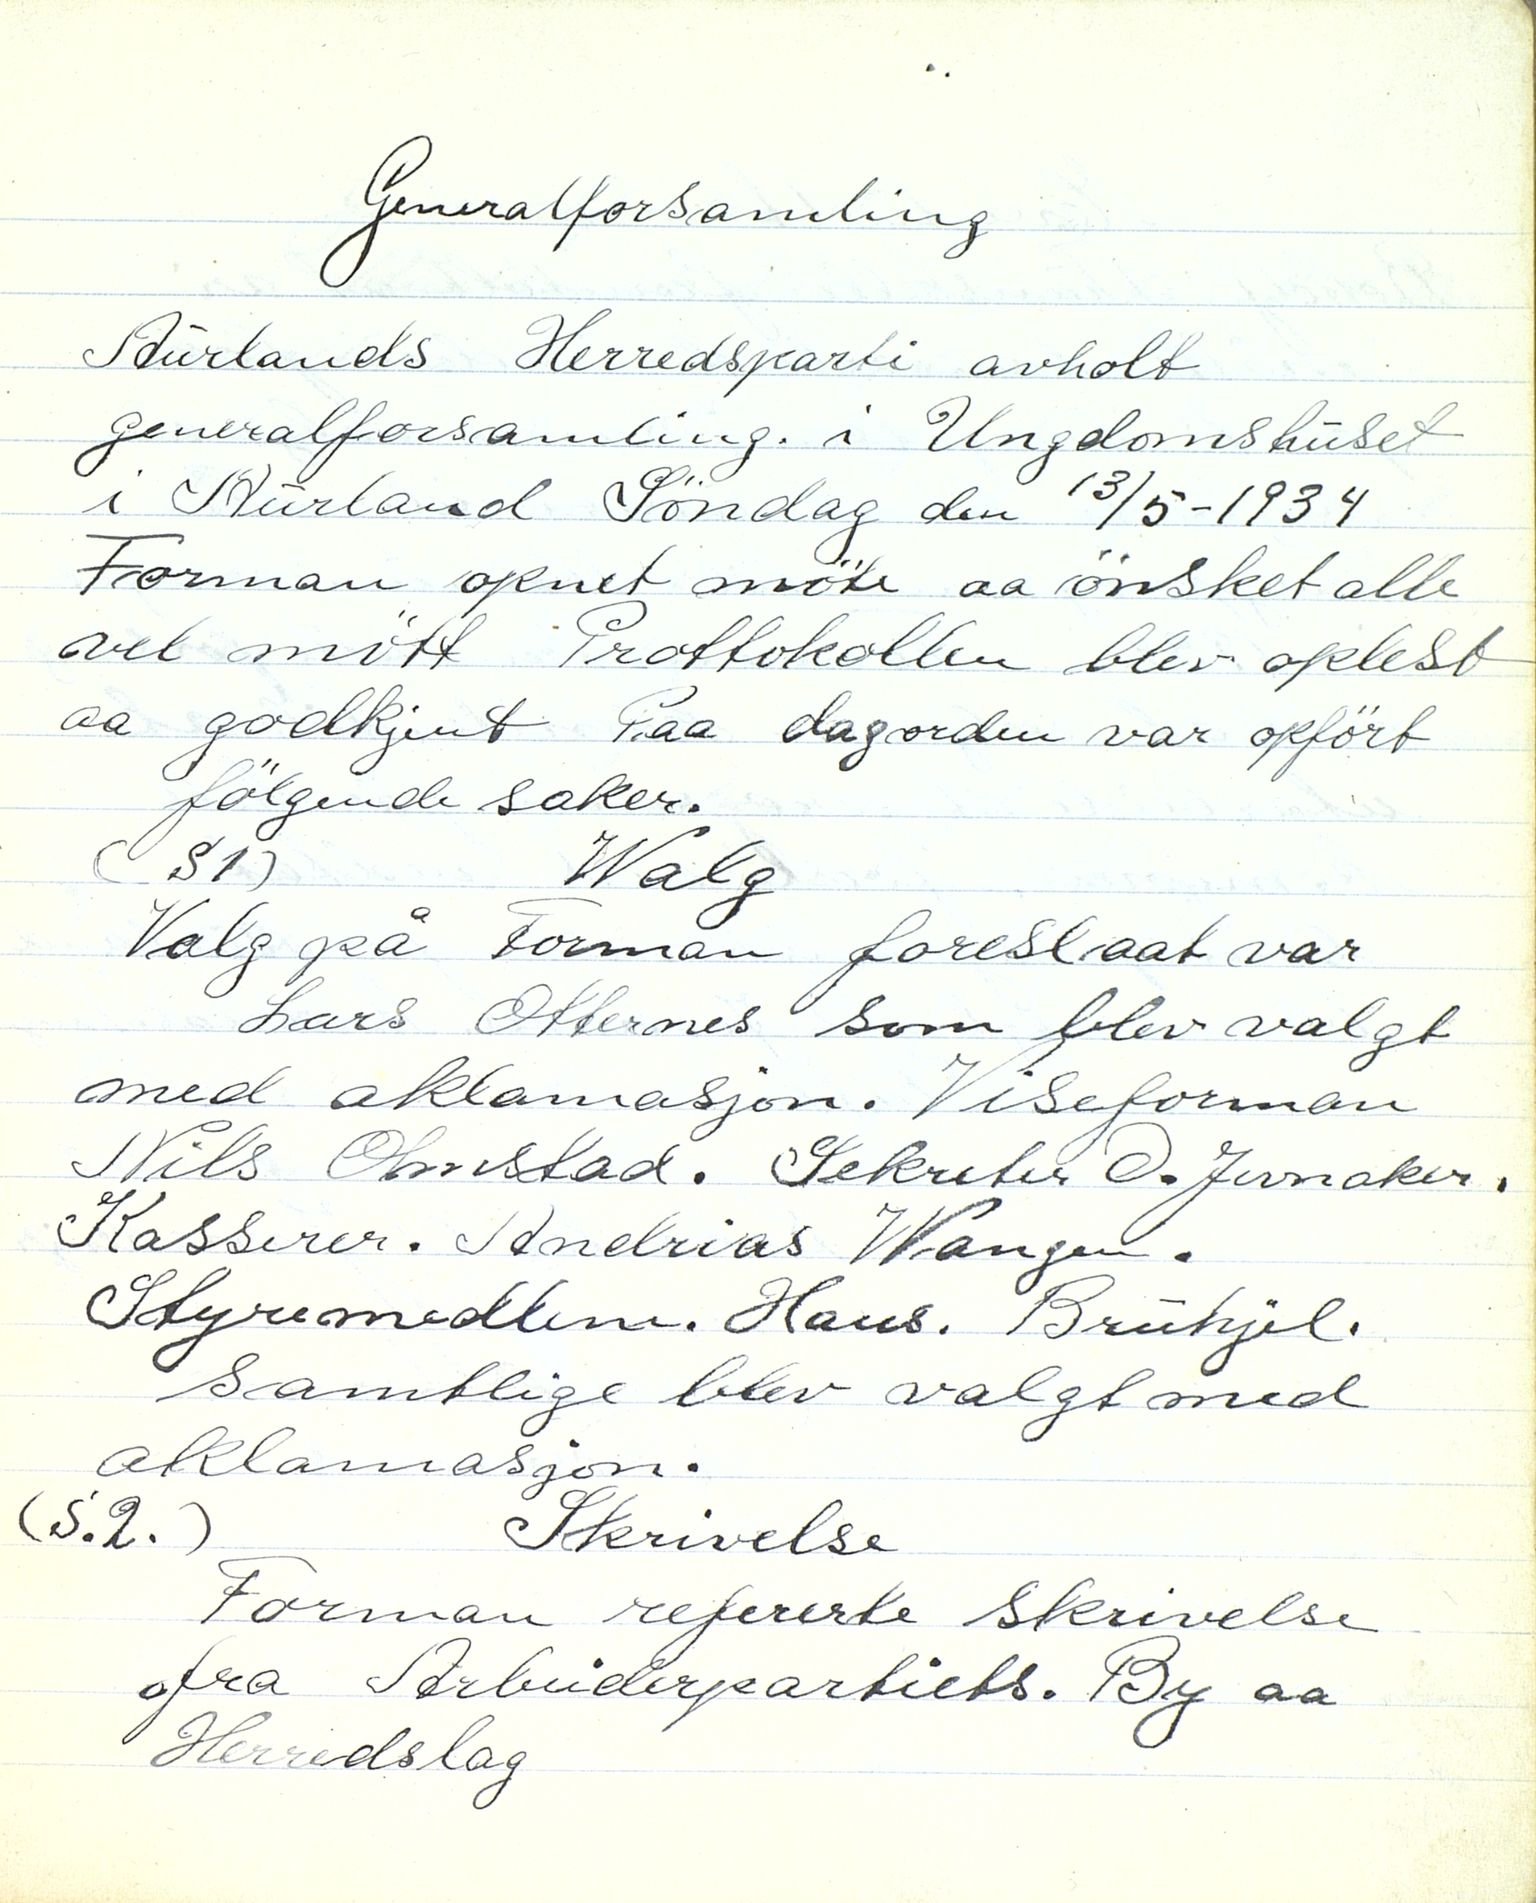 Generalforsamling
Aurlands Herredsparti avholt
generalforsamling. i Ungdomshuset
i Aurland Söndag den 13/5-1934
Forman opnet möte aa önsket alle
vel mött Prottokollen blev oplest
aa godkjent Paa dagorden var opfört
fölgende saker.
(§1) Walg
Valg på Forman foreslaat var
Lars Otternes som blev valgt
med aklamasjon. Viseforman
Nils Ohnstad. Sekreter O. Jernaker.
Kasserer. Andrias Wangen.
Styremedlem. Hans. Brukjel.
samtlige blev valgt med
aklamasjon.
(§.2.) Skrivelse
Forman refererte skrivelse
fra Arbeiderpartiets. By aa
Herredslag